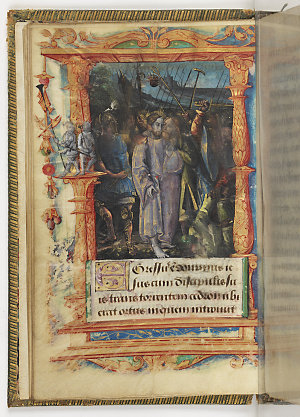 EGressus ē dominus ie
sus cum discipulis su
is trans torrentem cedron ubi
erat ortus in quem introivit